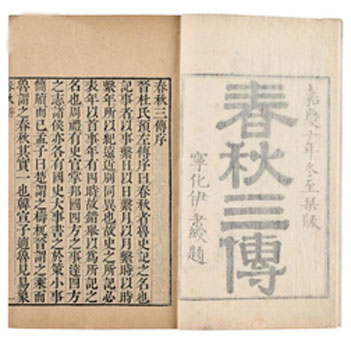 嘉慶十年冬至栞版
春秋三傳
寧化伊秉綬題
春秋三傳序
晉杜氏預左傳序曰春秋者魯史記之名也
記事者以事繫日以日繫月以月繫時以時
繫年所以紀遠近別同異也故史之所記必
表年以首事年有四時故錯舉以爲所記之
名也周禮有史官掌邦國四方之事達四方
之志諸侯亦各有國史大事書之於策小事
簡牘而已孟子曰楚謂之檮杌晉謂之乘而
魯謂之春秋其實一也韓宣子適魯見易象